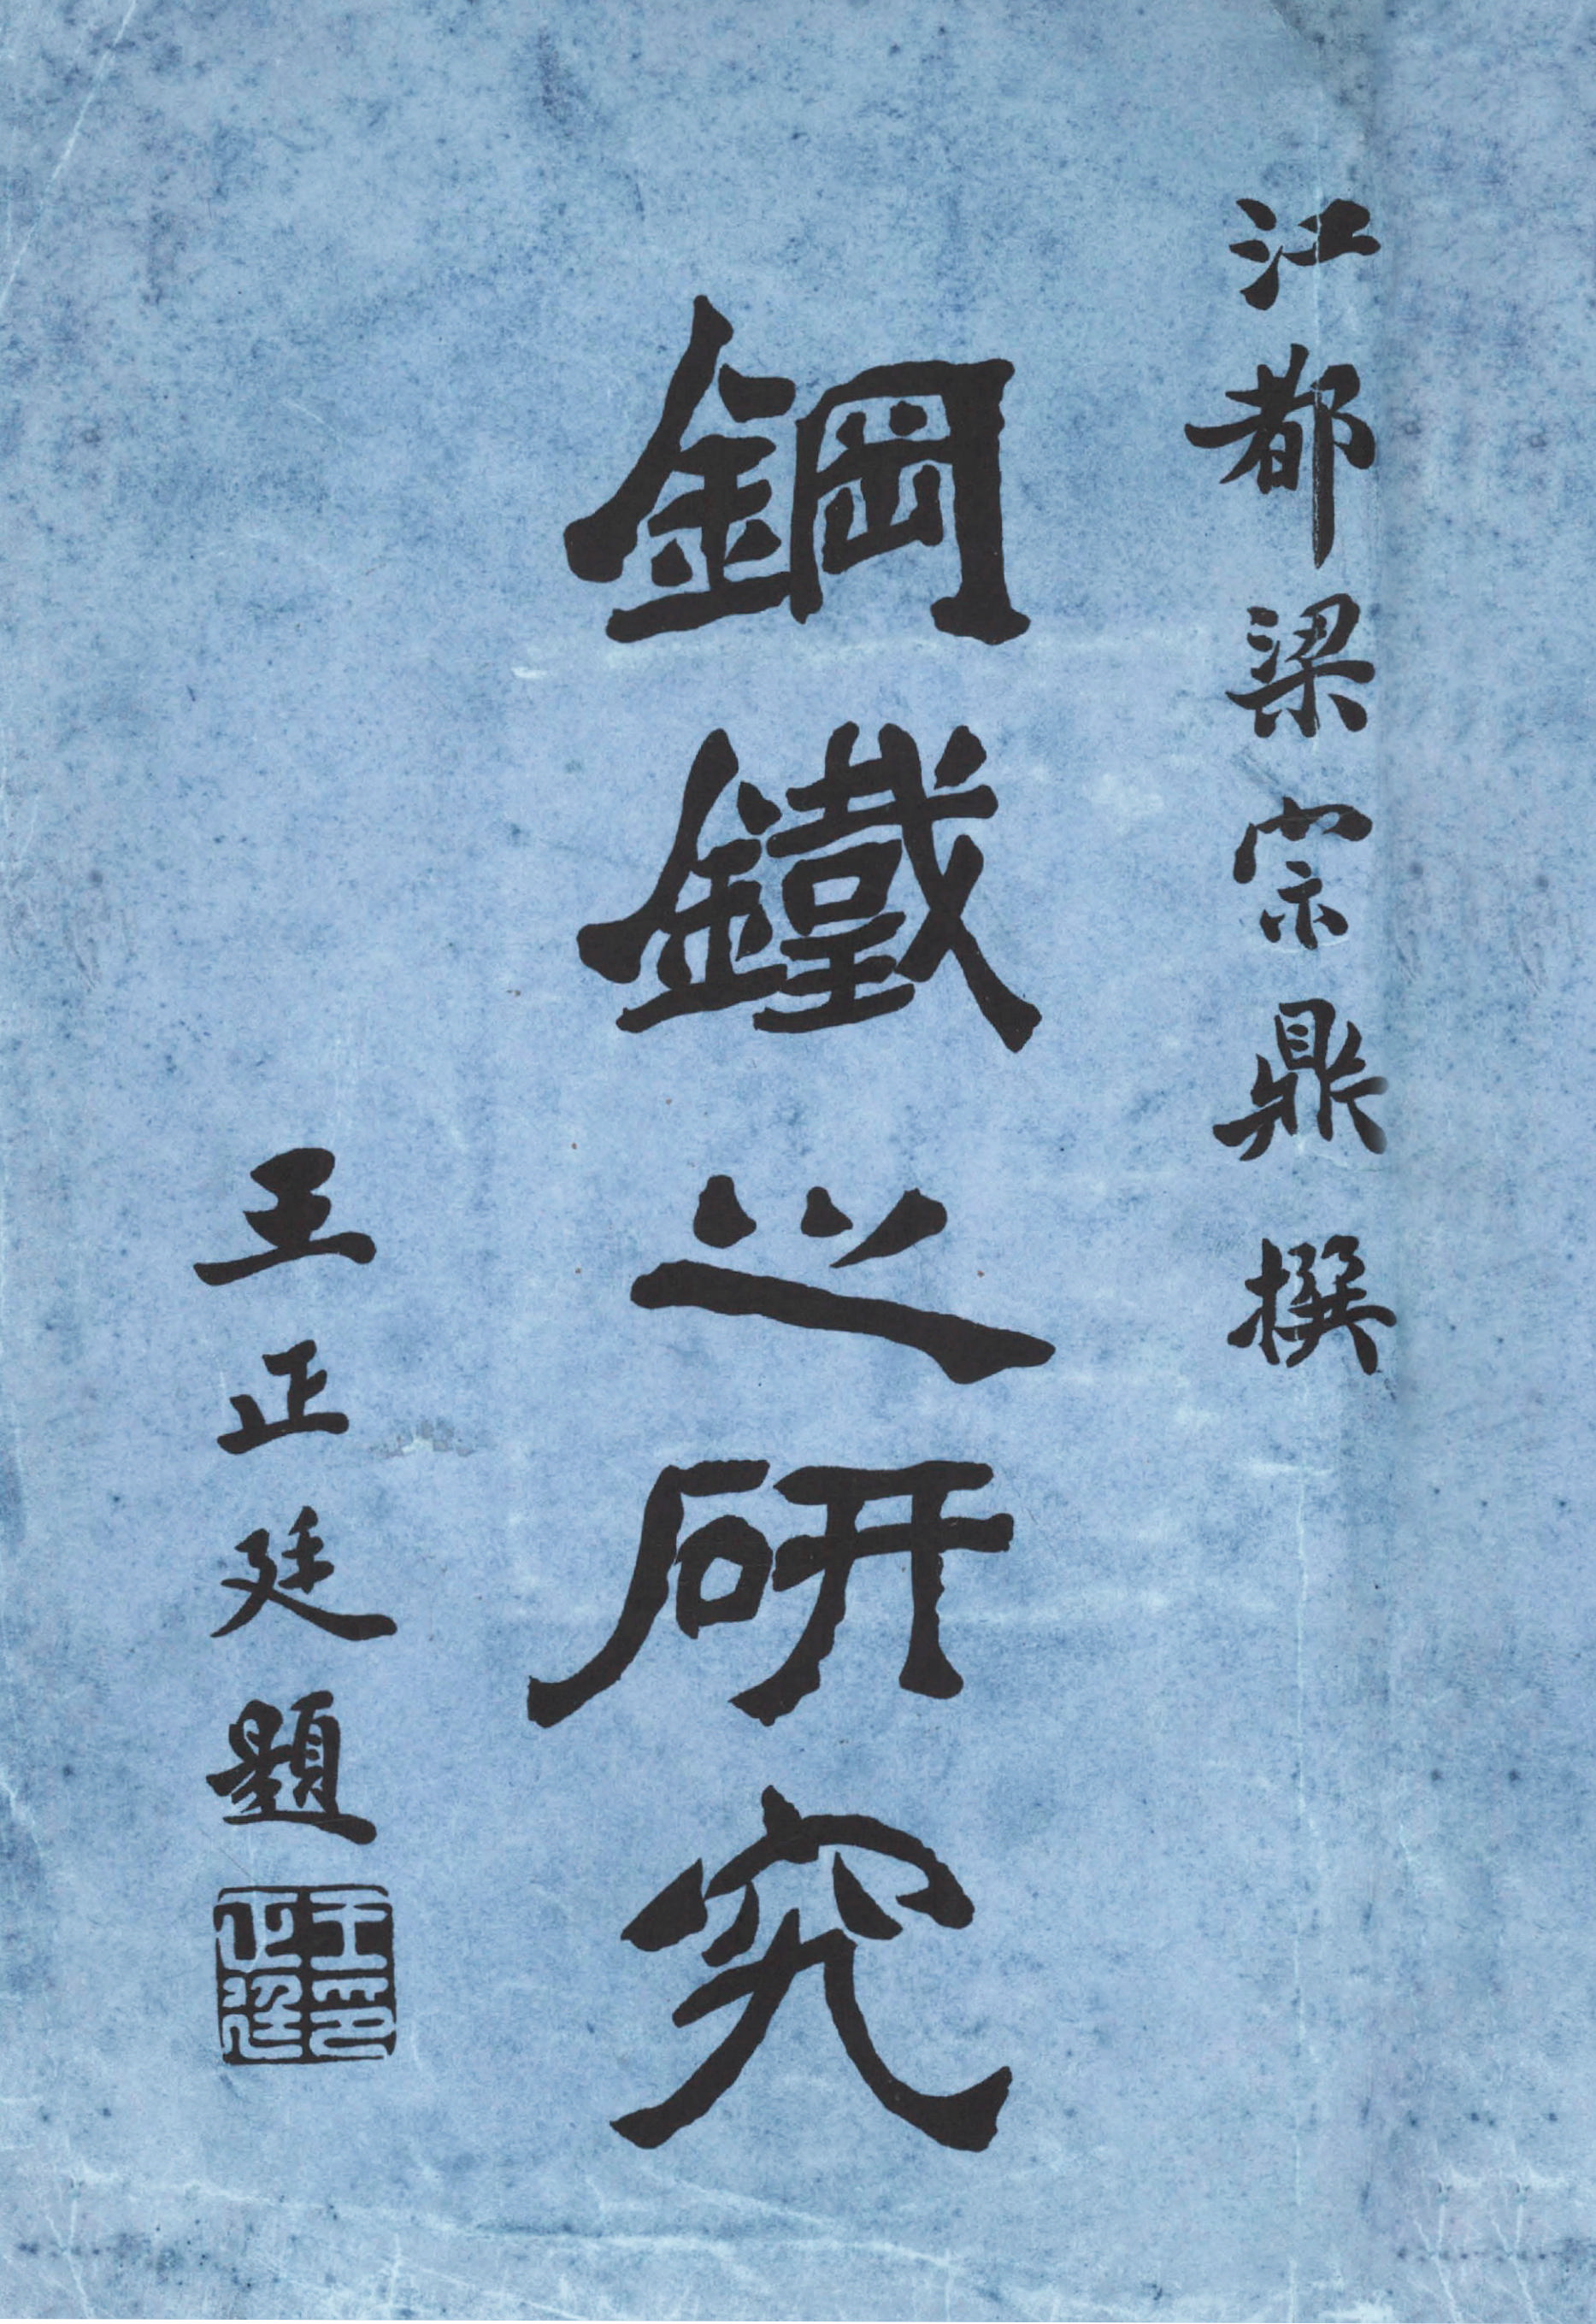 江都梁宗鼎撰
鋼鐵之研究
王正廷題
王正廷印